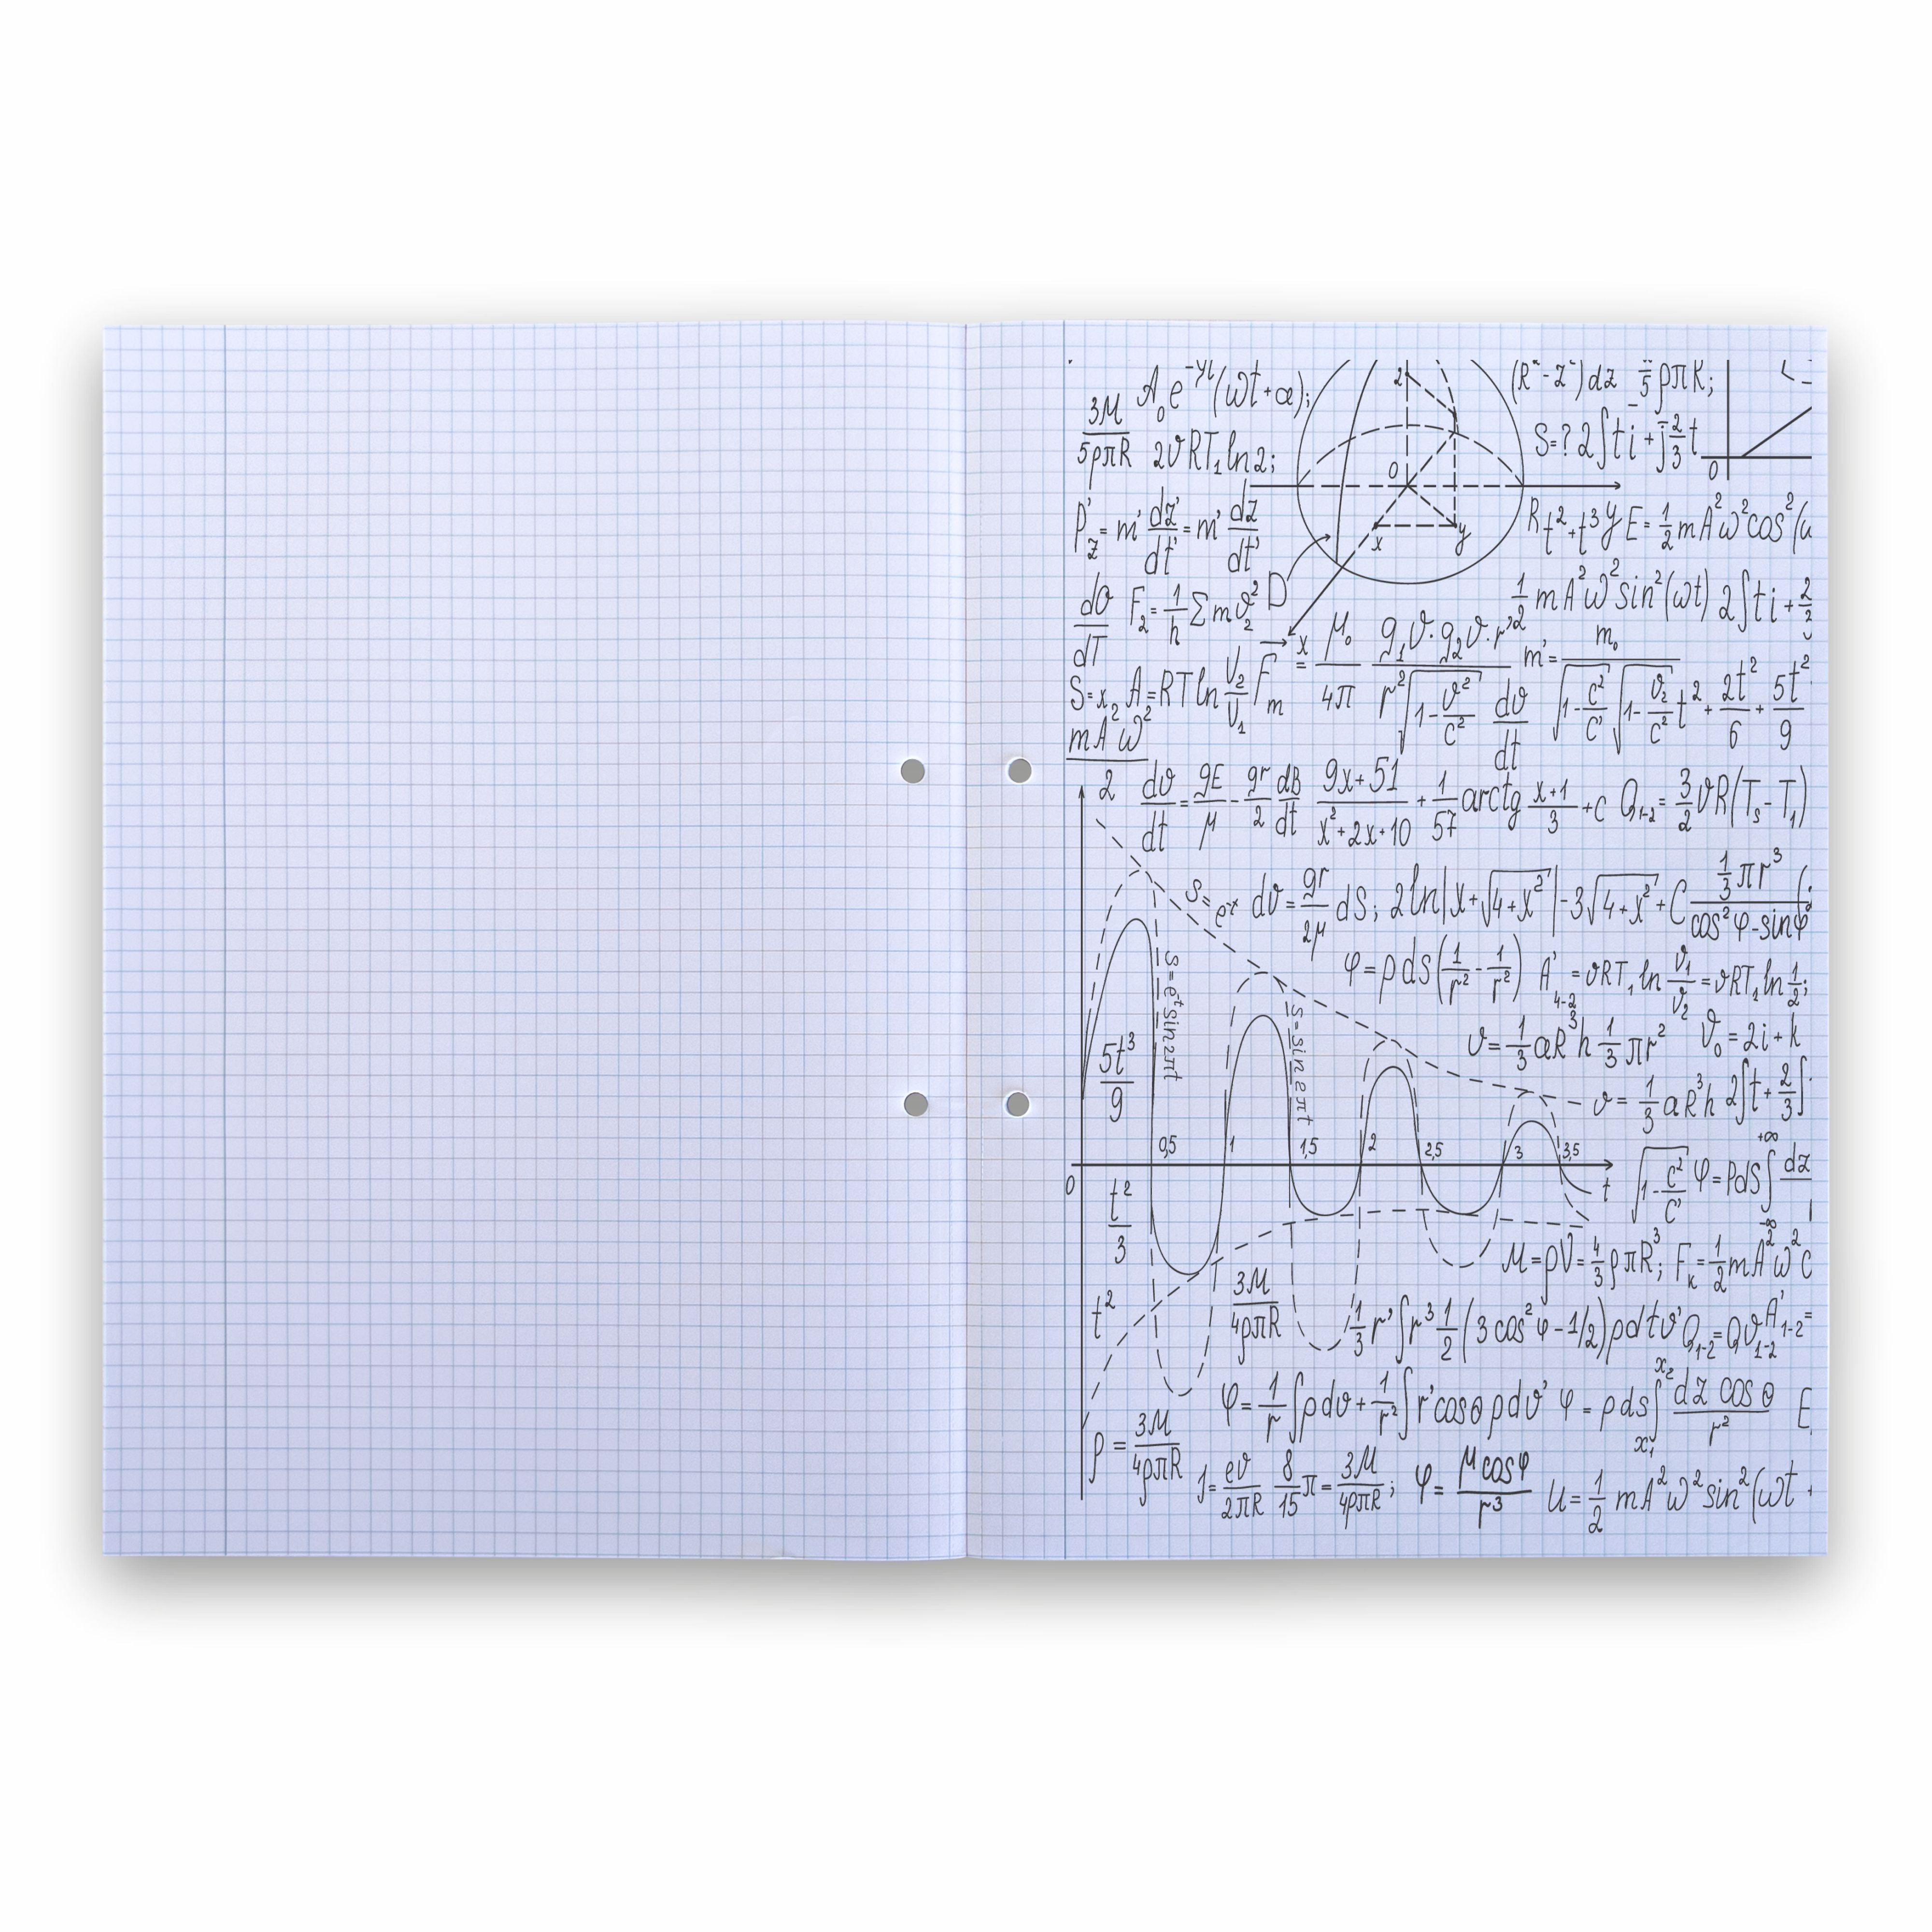 A₀e^-γt(ωt+α);
(R²-z²)dz
5ρπK;
3M/5ρπR 2ϑRT₁ln2;
2
0
x
y
D
x
S=? 2∫ti+j 2/3 t
0
P'z=m' dz'/dt'=m' dz/dt'
Rt²+t³y E=1/2 mA²ω²cos²(
dϑ/dT F₂=1/h Σmϑ₂²
1/2 mA²ω²sin²(ωt) 2∫ti+2/3
S=x₂ A=RTln V₂/V₁ Fm = μ₀/4π g₁ϑ·g₂ϑ·r'/r²√1-ϑ²/c² dϑ/dt m'=m₀/√1-c²/c' √1-ϑ₂/c² t²+2t²/6+5t²/9
mA²ω²/2
dϑ/dt=gE/μ-gr/2 dB/dt 9x+51/x²+2x+10+1/57 arctg x+1/3+c Q₁₋₂=3/2 ϑR(Tₛ-T₁)
S=e^-x dϑ=gr/2μ dS; 2ln|x+√4+x²|-3√4+x²+C 1/3πr³/cos²φ-sinφ²
φ=ρdS(1/r²-1/r²) A'₄₋₂=ϑRT₁ln ϑ₁/ϑ₂=ϑRT₁ln 1/2;
S=e^-t sin2πt
S=sin2πt
ϑ=1/3 aR³h 1/3 πr² ϑ₀=2i+k
5t³/9
ϑ=1/3 aR³h 2∫t+2/3∫
0,5 1 1,5 2 2,5 3 3,5
0
t
√1-c²/c' φ=PdS∫+∞-∞ dz
t²/3
M=ρV=4/3ρπR³; Fк=1/2mA²ω²c
t²
3M/4ρπR
1/3 r'∫r³ 1/2(3cos²φ-1/2)ρdtϑ' Q₁₋₂=Qϑ₁₋₂ A'₁₋₂=
φ=1/r∫ρdϑ+1/r²∫r'cosθρdϑ' φ=ρds∫x₂x₁ dz cosθ/r² E
ρ=3M/4ρπR
J=eϑ/2πR 8/15π=3M/4ρπR; φ=μcosφ/r³ U=1/2 mA²ω²sin²(ωt+